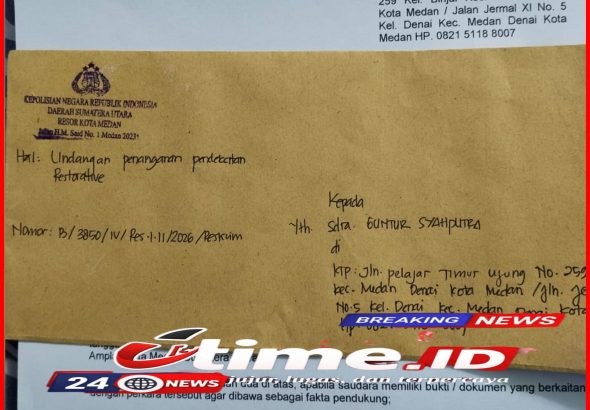 259 Kel. Binjai
Kota Medan / Jalan Jermal XI No. 5
Kel. Denai Kec. Medan Denai Kota
Medan HP. 0821 5118 8007
KEPOLISIAN NEGARA REPUBLIK INDONESIA
DAERAH SUMATERA UTARA
RESOR KOTA MEDAN
Jalan H.M. Said No. 1 Medan 20231
Hal : Undangan penanganan pendekatan
Restorative
Nomor : B/3850/IV/Res.1.11/2026/Reskrim
Kepada
Yth. Sdra. GUNTUR SYAHPUTRA
di
KTP : Jln. pelajar Timur Ujung No. 259
Kec. Medan Denai Kota Medan / Jln. Je
No.5 Kel. Denai Kec. Medan Denai Kota
BREAKING NEWS
time.ID
24 NEWS
dan terpercaya
dua di atas, apabila saudara memiliki bukti / dokumen yang berkaitan
dengan perkara tersebut agar dibawa sebagai fakta pendukung;